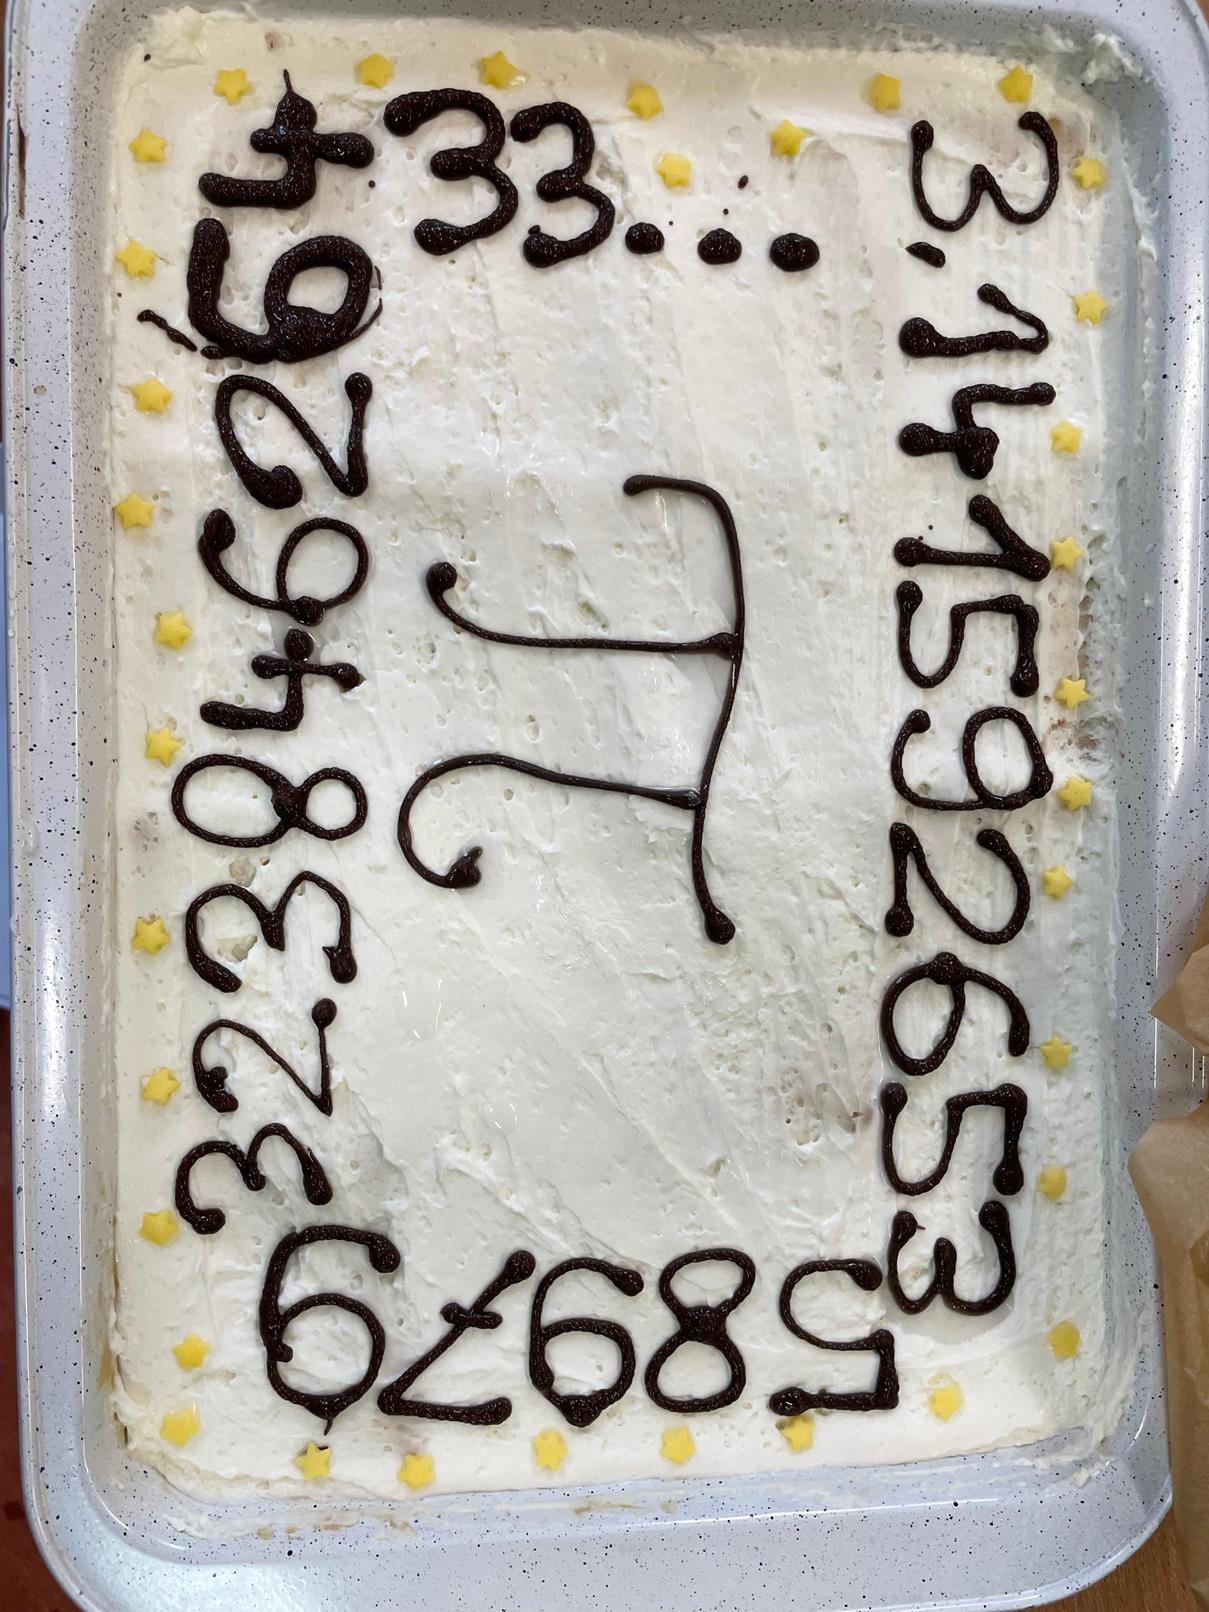 3,141592653
58979
323846264
33...
π